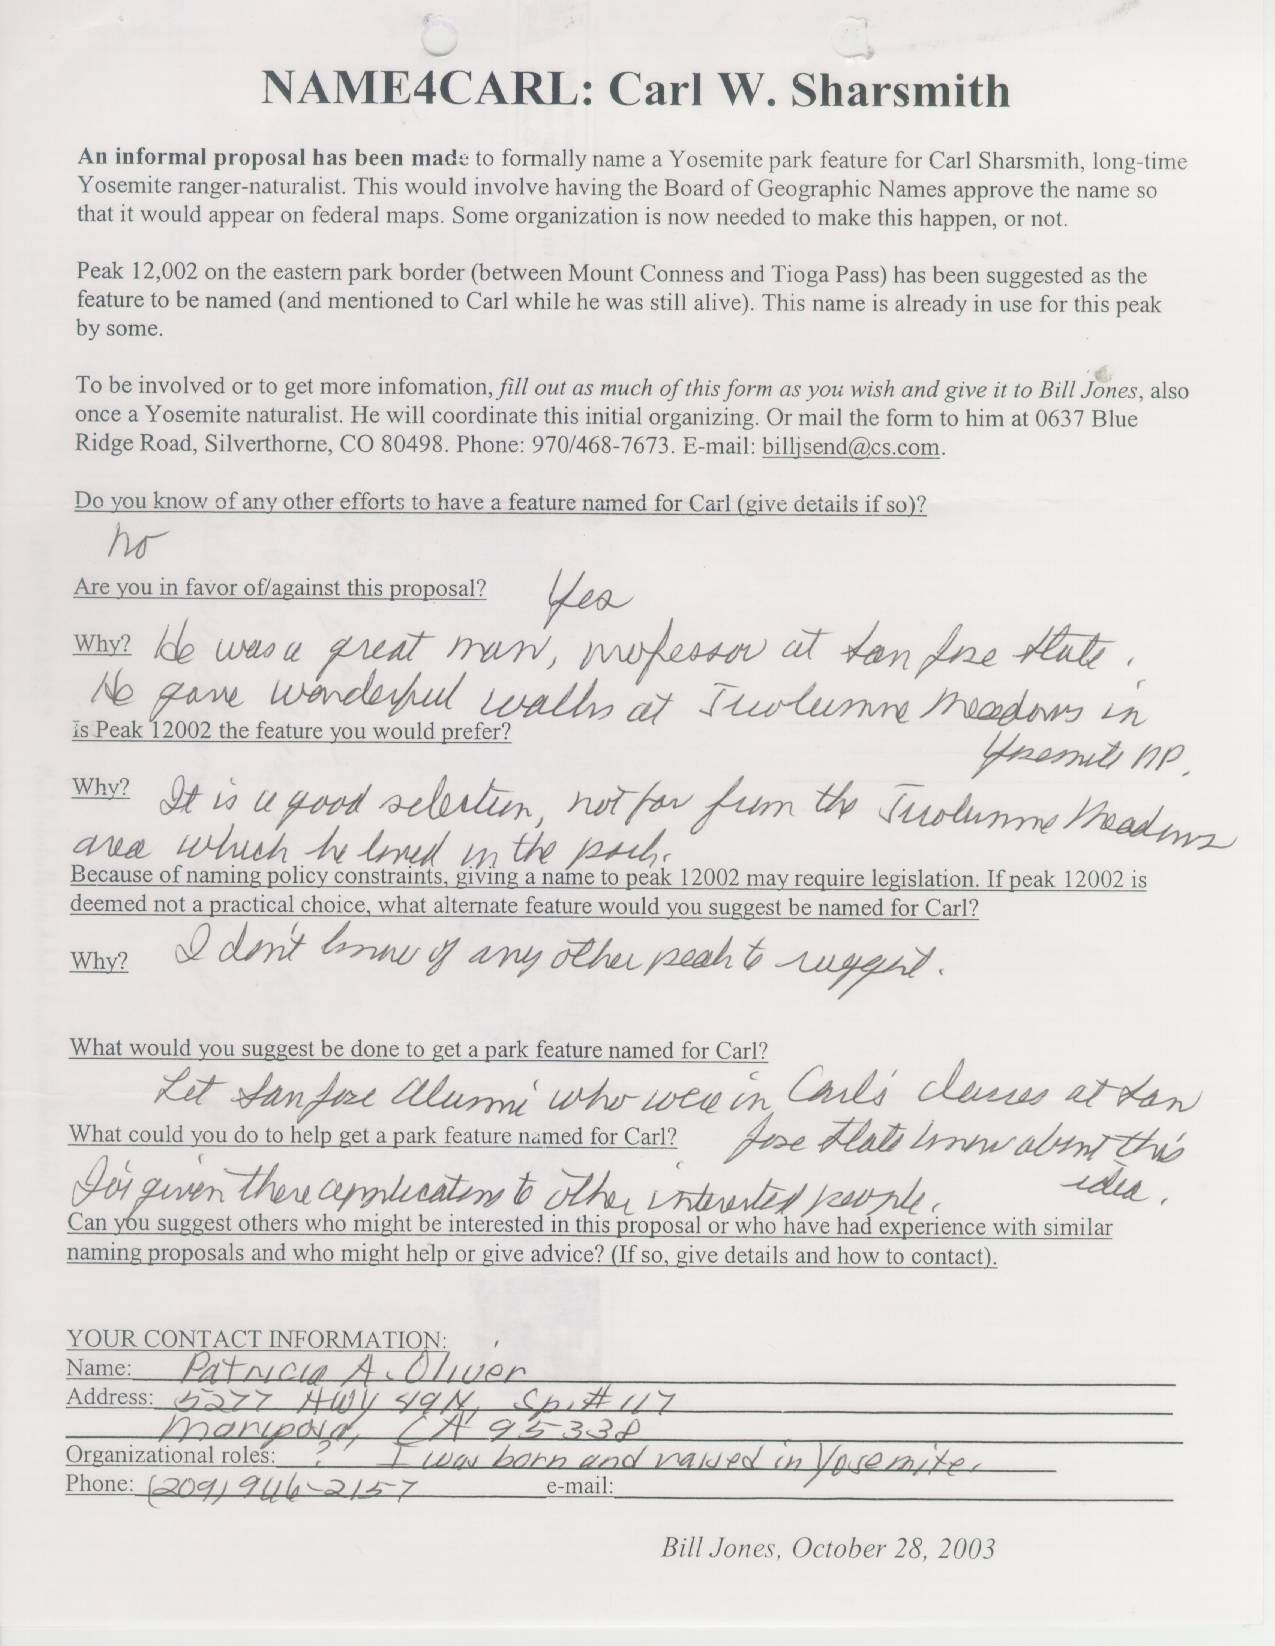 NAME4CARL: Carl W. Sharsmith
An informal proposal has been made to formally name a Yosemite park feature for Carl Sharsmith, long-time
Yosemite ranger-naturalist. This would involve having the Board of Geographic Names approve the name so
that it would appear on federal maps. Some organization is now needed to make this happen, or not.
Peak 12,002 on the eastern park border (between Mount Conness and Tioga Pass) has been suggested as the
feature to be named (and mentioned to Carl while he was still alive). This name is already in use for this peak
by some.
To be involved or to get more infomation, fill out as much of this form as you wish and give it to Bill Jones, also
once a Yosemite naturalist. He will coordinate this initial organizing. Or mail the form to him at 0637 Blue
Ridge Road, Silverthorne, CO 80498. Phone: 970/468-7673. E-mail: billjsend@cs.com.
Do you know of any other efforts to have a feature named for Carl (give details if so)?
no
Are you in favor of/against this proposal? Yes
Why? He was a great man, professor at San Jose State.
He gave wonderful walks at Tuolumne Meadows in
Is Peak 12002 the feature you would prefer?
Yosemite NP.
Why? It is a good selection, not far from the Tuolumne Meadows
area which he loved in the park.
Because of naming policy constraints, giving a name to peak 12002 may require legislation. If peak 12002 is
deemed not a practical choice, what alternate feature would you suggest be named for Carl?
Why? I don't know of any other peak to suggest.
What would you suggest be done to get a park feature named for Carl?
Let San Jose Alumni who were in Carl's classes at San
What could you do to help get a park feature named for Carl? Jose State know about this
idea.
given these applications to other interested people.
Can you suggest others who might be interested in this proposal or who have had experience with similar
naming proposals and who might help or give advice? (If so, give details and how to contact).
YOUR CONTACT INFORMATION:
Name: Patricia A. Oliver
Address: 5277 HWY 49N, Sp. # 117
Mariposa, CA 95338
Organizational roles: ? I was born and raised in Yosemite.
Phone: (209) 966-2157 e-mail:
Bill Jones, October 28, 2003